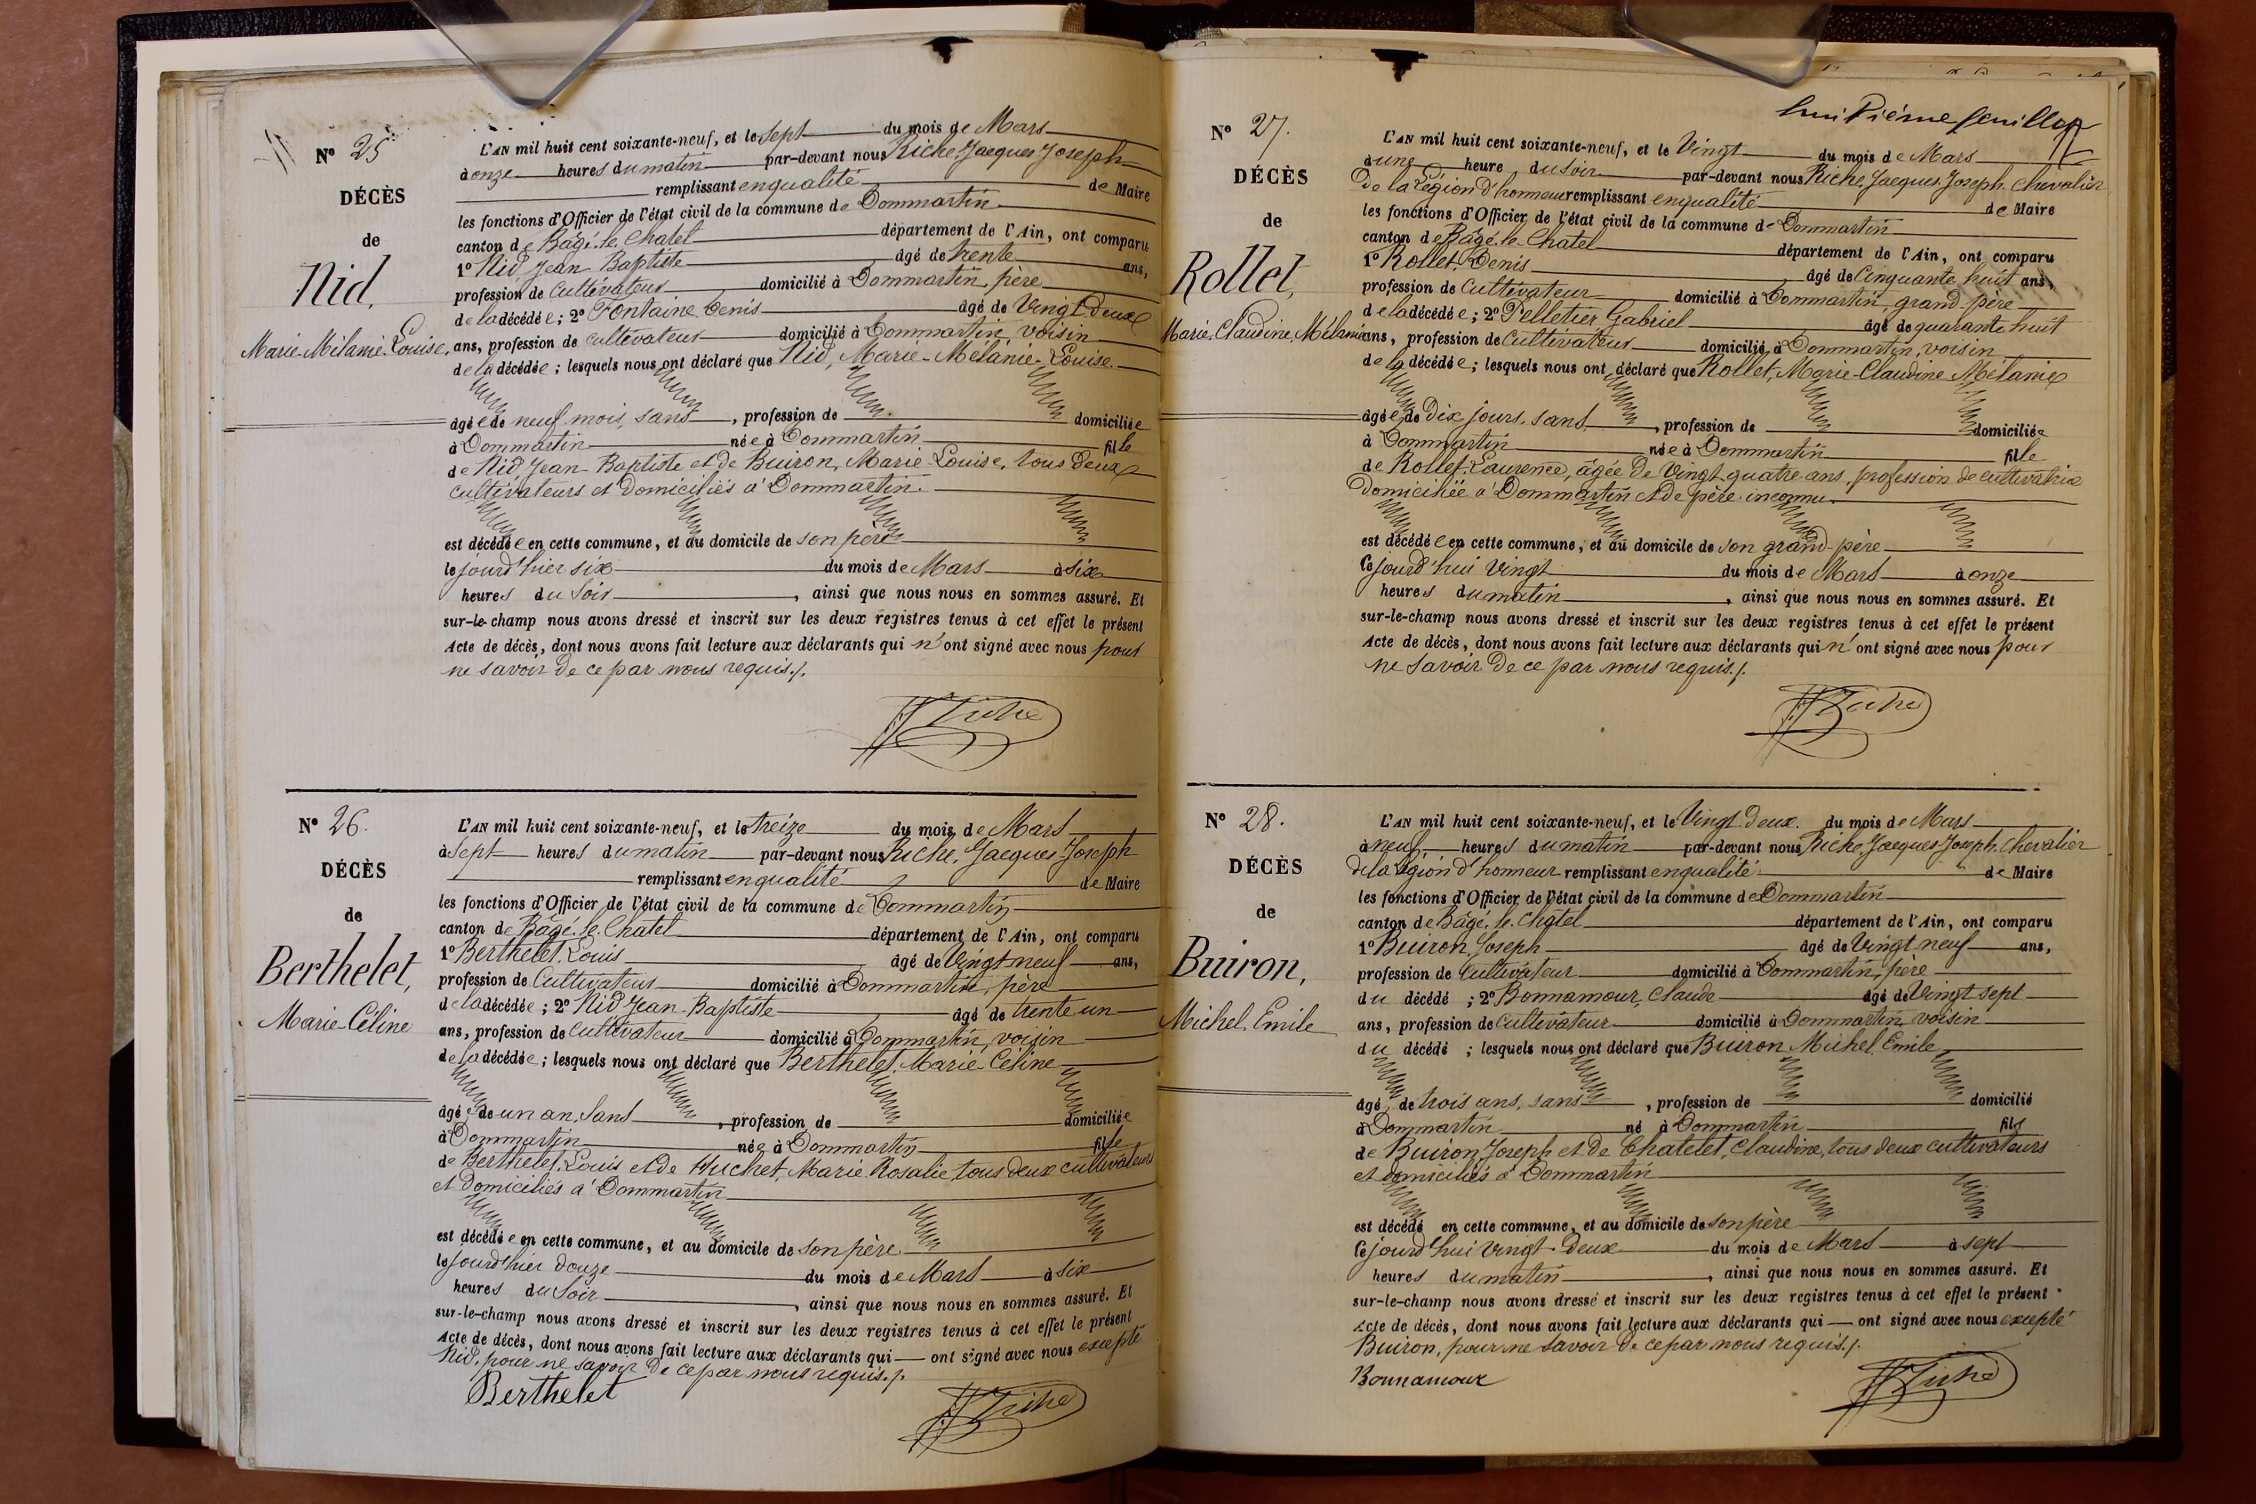 N° 25
DÉCÈS
de
Nid,
Marie-Mélanie-Louise,
L'AN mil huit cent soixante-neuf, et le sept du mois de Mars
à onze heures du matin par-devant nous Riche, Jacques Joseph
remplissant en qualité de Maire
les fonctions d'Officier de l'état civil de la commune de Dommartin
canton de Bâgé-le-Chatel département de l'Ain, ont comparu
1° Nid Jean Baptiste âgé de trente ans,
profession de Cultivateur domicilié à Dommartin, père
de la décédée; 2° Fontaine Denis âgé de Vingt-deux
ans, profession de cultivateur domicilié à Dommartin, voisin
de la décédée; lesquels nous ont déclaré que Nid, Marie-Mélanie-Louise.
âgée de neuf mois, sans, profession de domiciliée
à Dommartin née à Dommartin fille
de Nid Jean-Baptiste et de Buiron, Marie-Louise, tous deux
cultivateurs et domiciliés à Dommartin.
est décédée en cette commune, et au domicile de son père
le jourd'hier six du mois de Mars à six
heures du soir, ainsi que nous nous en sommes assuré. Et
sur-le-champ nous avons dressé et inscrit sur les deux registres tenus à cet effet le présent
Acte de décès, dont nous avons fait lecture aux déclarants qui n'ont signé avec nous pour
ne savoir de ce par nous requis./.
Riche
N° 26.
DÉCÈS
de
Berthelet,
Marie-Céline
L'AN mil huit cent soixante-neuf, et le treize du mois de Mars
à sept heures du matin par-devant nous Riche, Jacques Joseph
remplissant en qualité de Maire
les fonctions d'Officier de l'état civil de la commune de Dommartin
canton de Bâgé-le-Chatel département de l'Ain, ont comparu
1° Berthelet, Louis âgé de Vingt neuf ans,
profession de Cultivateur domicilié à Dommartin, père
de la décédée; 2° Nid Jean-Baptiste âgé de trente un
ans, profession de cultivateur domicilié à Dommartin, voisin
de la décédée; lesquels nous ont déclaré que Berthelet, Marie-Céline
âgée de un an, sans, profession de domiciliée
à Dommartin née à Dommartin fille
de Berthelet, Louis et de Huchet, Marie Rosalie, tous deux cultivateurs
et domiciliés à Dommartin
est décédée en cette commune, et au domicile de son père
le jourd'hier douze du mois de Mars à six
heures du soir, ainsi que nous nous en sommes assuré. Et
sur-le-champ nous avons dressé et inscrit sur les deux registres tenus à cet effet le présent
Acte de décès, dont nous avons fait lecture aux déclarants qui — ont signé avec nous excepté
Nid, pour ne savoir de ce par nous requis./.
Berthelet
Riche
huitième feuillet
N° 27.
DÉCÈS
de
Rollet,
Marie-Claudine, Mélanie
L'AN mil huit cent soixante-neuf, et le Vingt du mois de Mars
à une heure du soir par-devant nous Riche, Jacques Joseph, Chevalier
de la Légion d'honneur remplissant en qualité de Maire
les fonctions d'Officier de l'état civil de la commune de Dommartin
canton de Bâgé-le-Chatel département de l'Ain, ont comparu
1° Rollet, Denis âgé de Cinquante huit ans,
profession de Cultivateur domicilié à Dommartin, grand-père
de la décédée; 2° Pelletier Gabriel âgé de quarante huit
ans, profession de cultivateur domicilié à Dommartin, voisin
de la décédée; lesquels nous ont déclaré que Rollet, Marie-Claudine Mélanie
âgée de Dix jours, sans, profession de domiciliée
à Dommartin née à Dommartin fille
de Rollet, Laurence, âgée de Vingt-quatre ans, profession de cultivatrice
domiciliée à Dommartin et de père inconnu
est décédée en cette commune, et au domicile de son grand-père
le jourd'hui Vingt du mois de Mars à onze
heures du matin, ainsi que nous nous en sommes assuré. Et
sur-le-champ nous avons dressé et inscrit sur les deux registres tenus à cet effet le présent
Acte de décès, dont nous avons fait lecture aux déclarants qui n'ont signé avec nous pour
ne savoir de ce par nous requis./.
Riche
N° 28.
DÉCÈS
de
Buiron,
Michel, Emile
L'AN mil huit cent soixante-neuf, et le Vingt deux. du mois de Mars
à neuf heures du matin par-devant nous Riche, Jacques Joseph, Chevalier
de la Légion d'honneur remplissant en qualité de Maire
les fonctions d'Officier de l'état civil de la commune de Dommartin
canton de Bâgé-le-Châtel département de l'Ain, ont comparu
1° Buiron, Joseph âgé de Vingt neuf ans,
profession de Cultivateur domicilié à Dommartin, père
du décédé; 2° Bonnamour, Claude âgé de Vingt sept
ans, profession de Cultivateur domicilié à Dommartin, voisin
du décédé; lesquels nous ont déclaré que Buiron Michel, Emile
âgé de trois ans, sans, profession de domicilié
à Dommartin né à Dommartin fils
de Buiron, Joseph et de Chatelet, Claudine, tous deux cultivateurs
et domiciliés à Dommartin
est décédé en cette commune, et au domicile de son père
le jourd'hui vingt-deux du mois de Mars à sept
heures du matin, ainsi que nous nous en sommes assuré. Et
sur-le-champ nous avons dressé et inscrit sur les deux registres tenus à cet effet le présent
Acte de décès, dont nous avons fait lecture aux déclarants qui — ont signé avec nous excepté
Buiron, pour ne savoir de ce par nous requis./.
Bonnamour
Riche